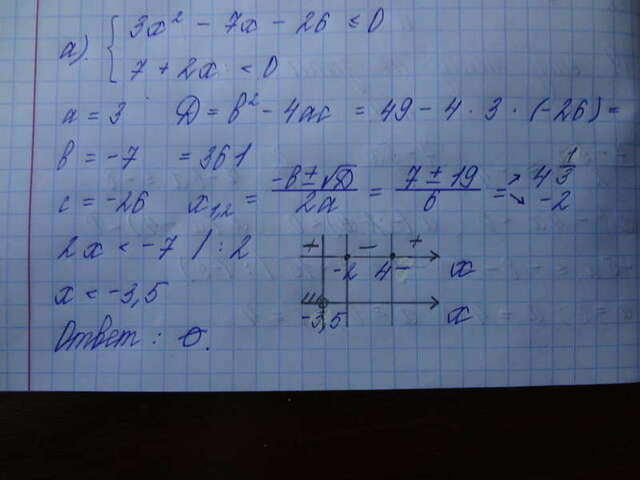 а). { 3x² - 7x - 26 ≤ 0
7 + 2x < 0
a = 3 D = b² - 4ac = 49 - 4 · 3 · (-26) =
b = -7 = 361
c = -26 x₁,₂ = (-b ± √D) / 2a = (7 ± 19) / 6 = 4 1/3
-2
2x < -7 / : 2
x < -3,5
+ - +
-2 4 x
-3,5 x
Ответ : ∅.